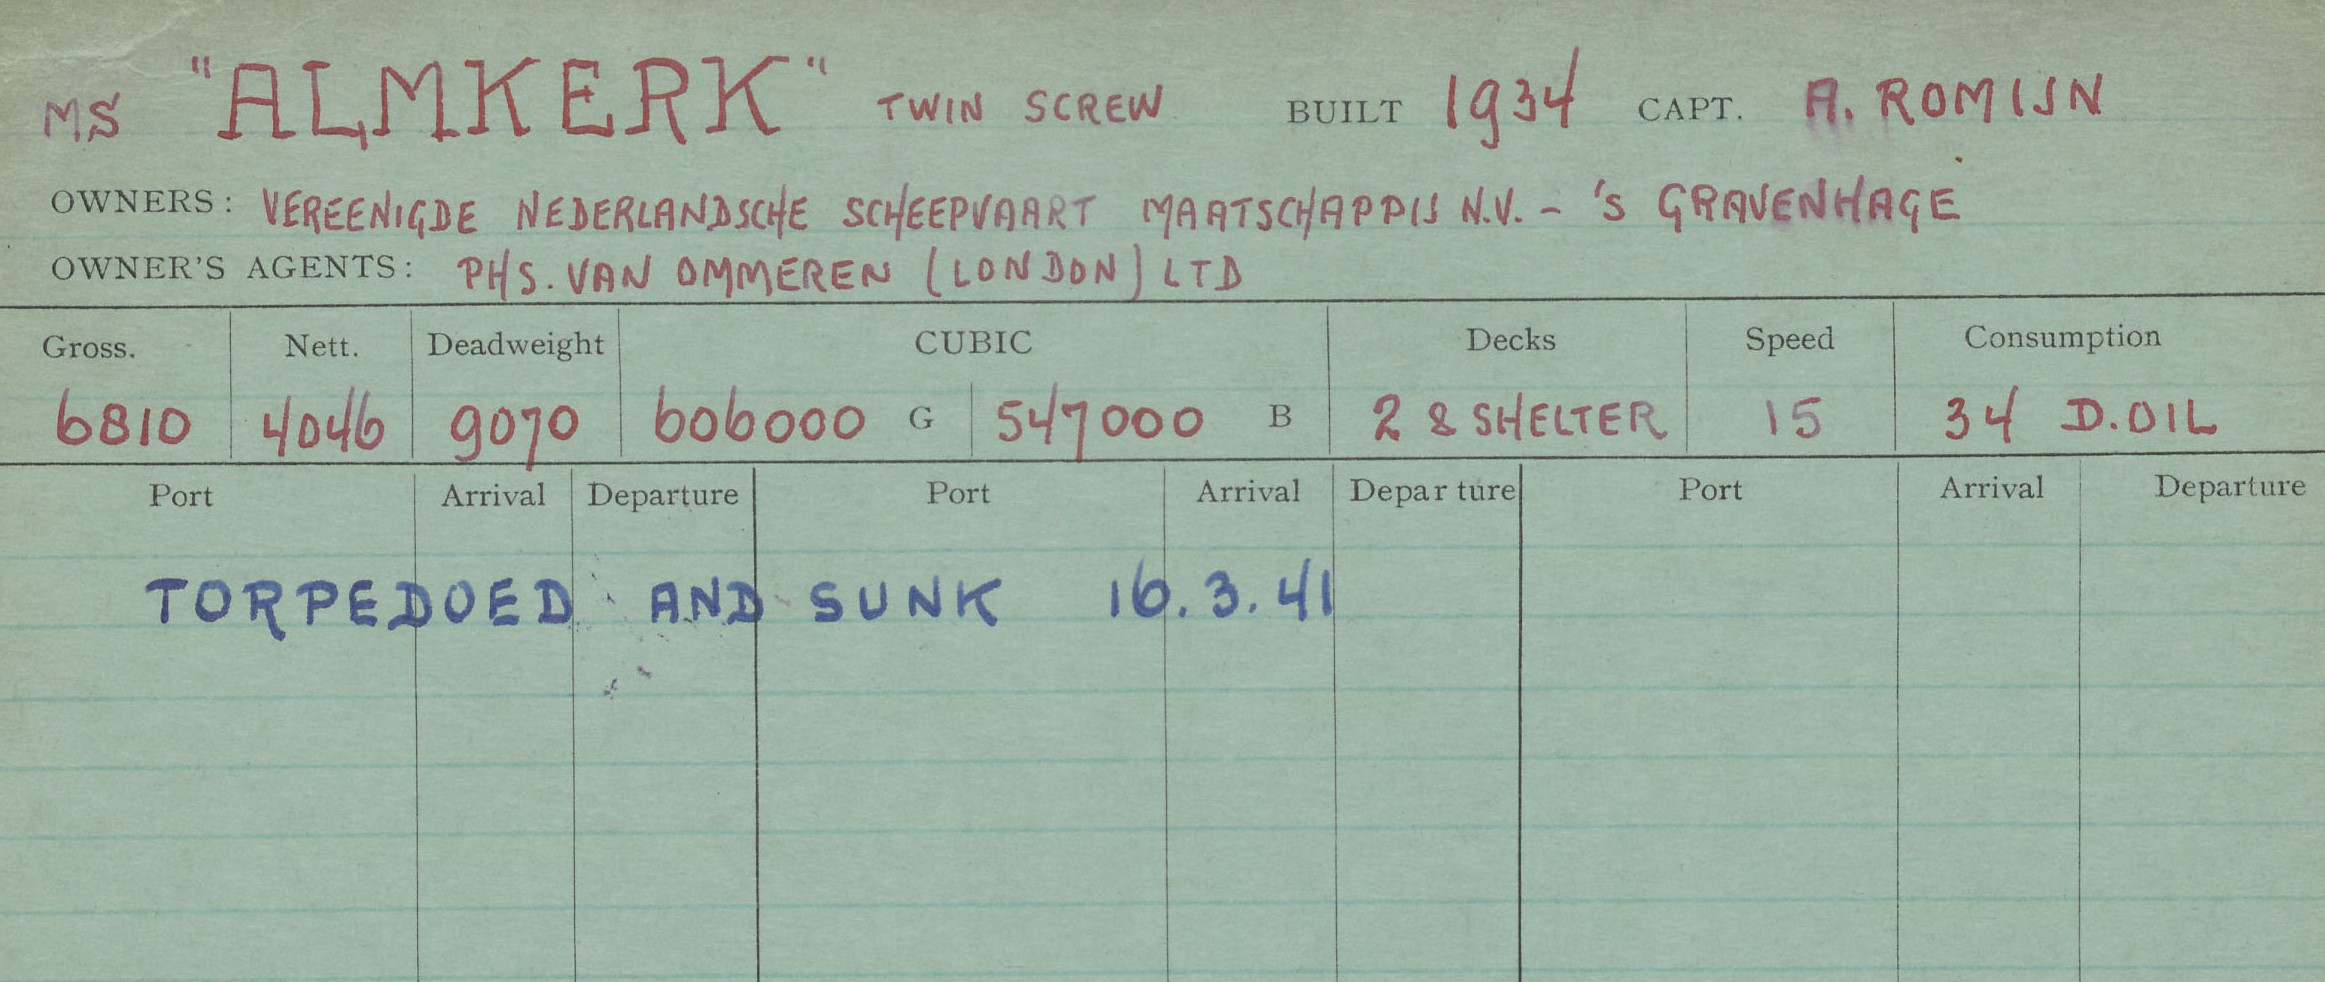 MS "ALMKERK" TWIN SCREW BUILT 1934 CAPT. A. ROMIJN
OWNERS: VEREENIGDE NEDERLANDSCHE SCHEEPVAART MAATSCHAPPIJ N.V. - 's GRAVENHAGE
OWNER'S AGENTS: PHS. VAN OMMEREN (LONDON) LTD
Gross. Nett. Deadweight CUBIC Decks Speed Consumption
6810 4046 9070 606000 G 547000 B 2 & SHELTER 15 34 D.OIL
Port Arrival Departure Port Arrival Depar ture Port Arrival Departure
TORPEDOED AND SUNK 16.3.41